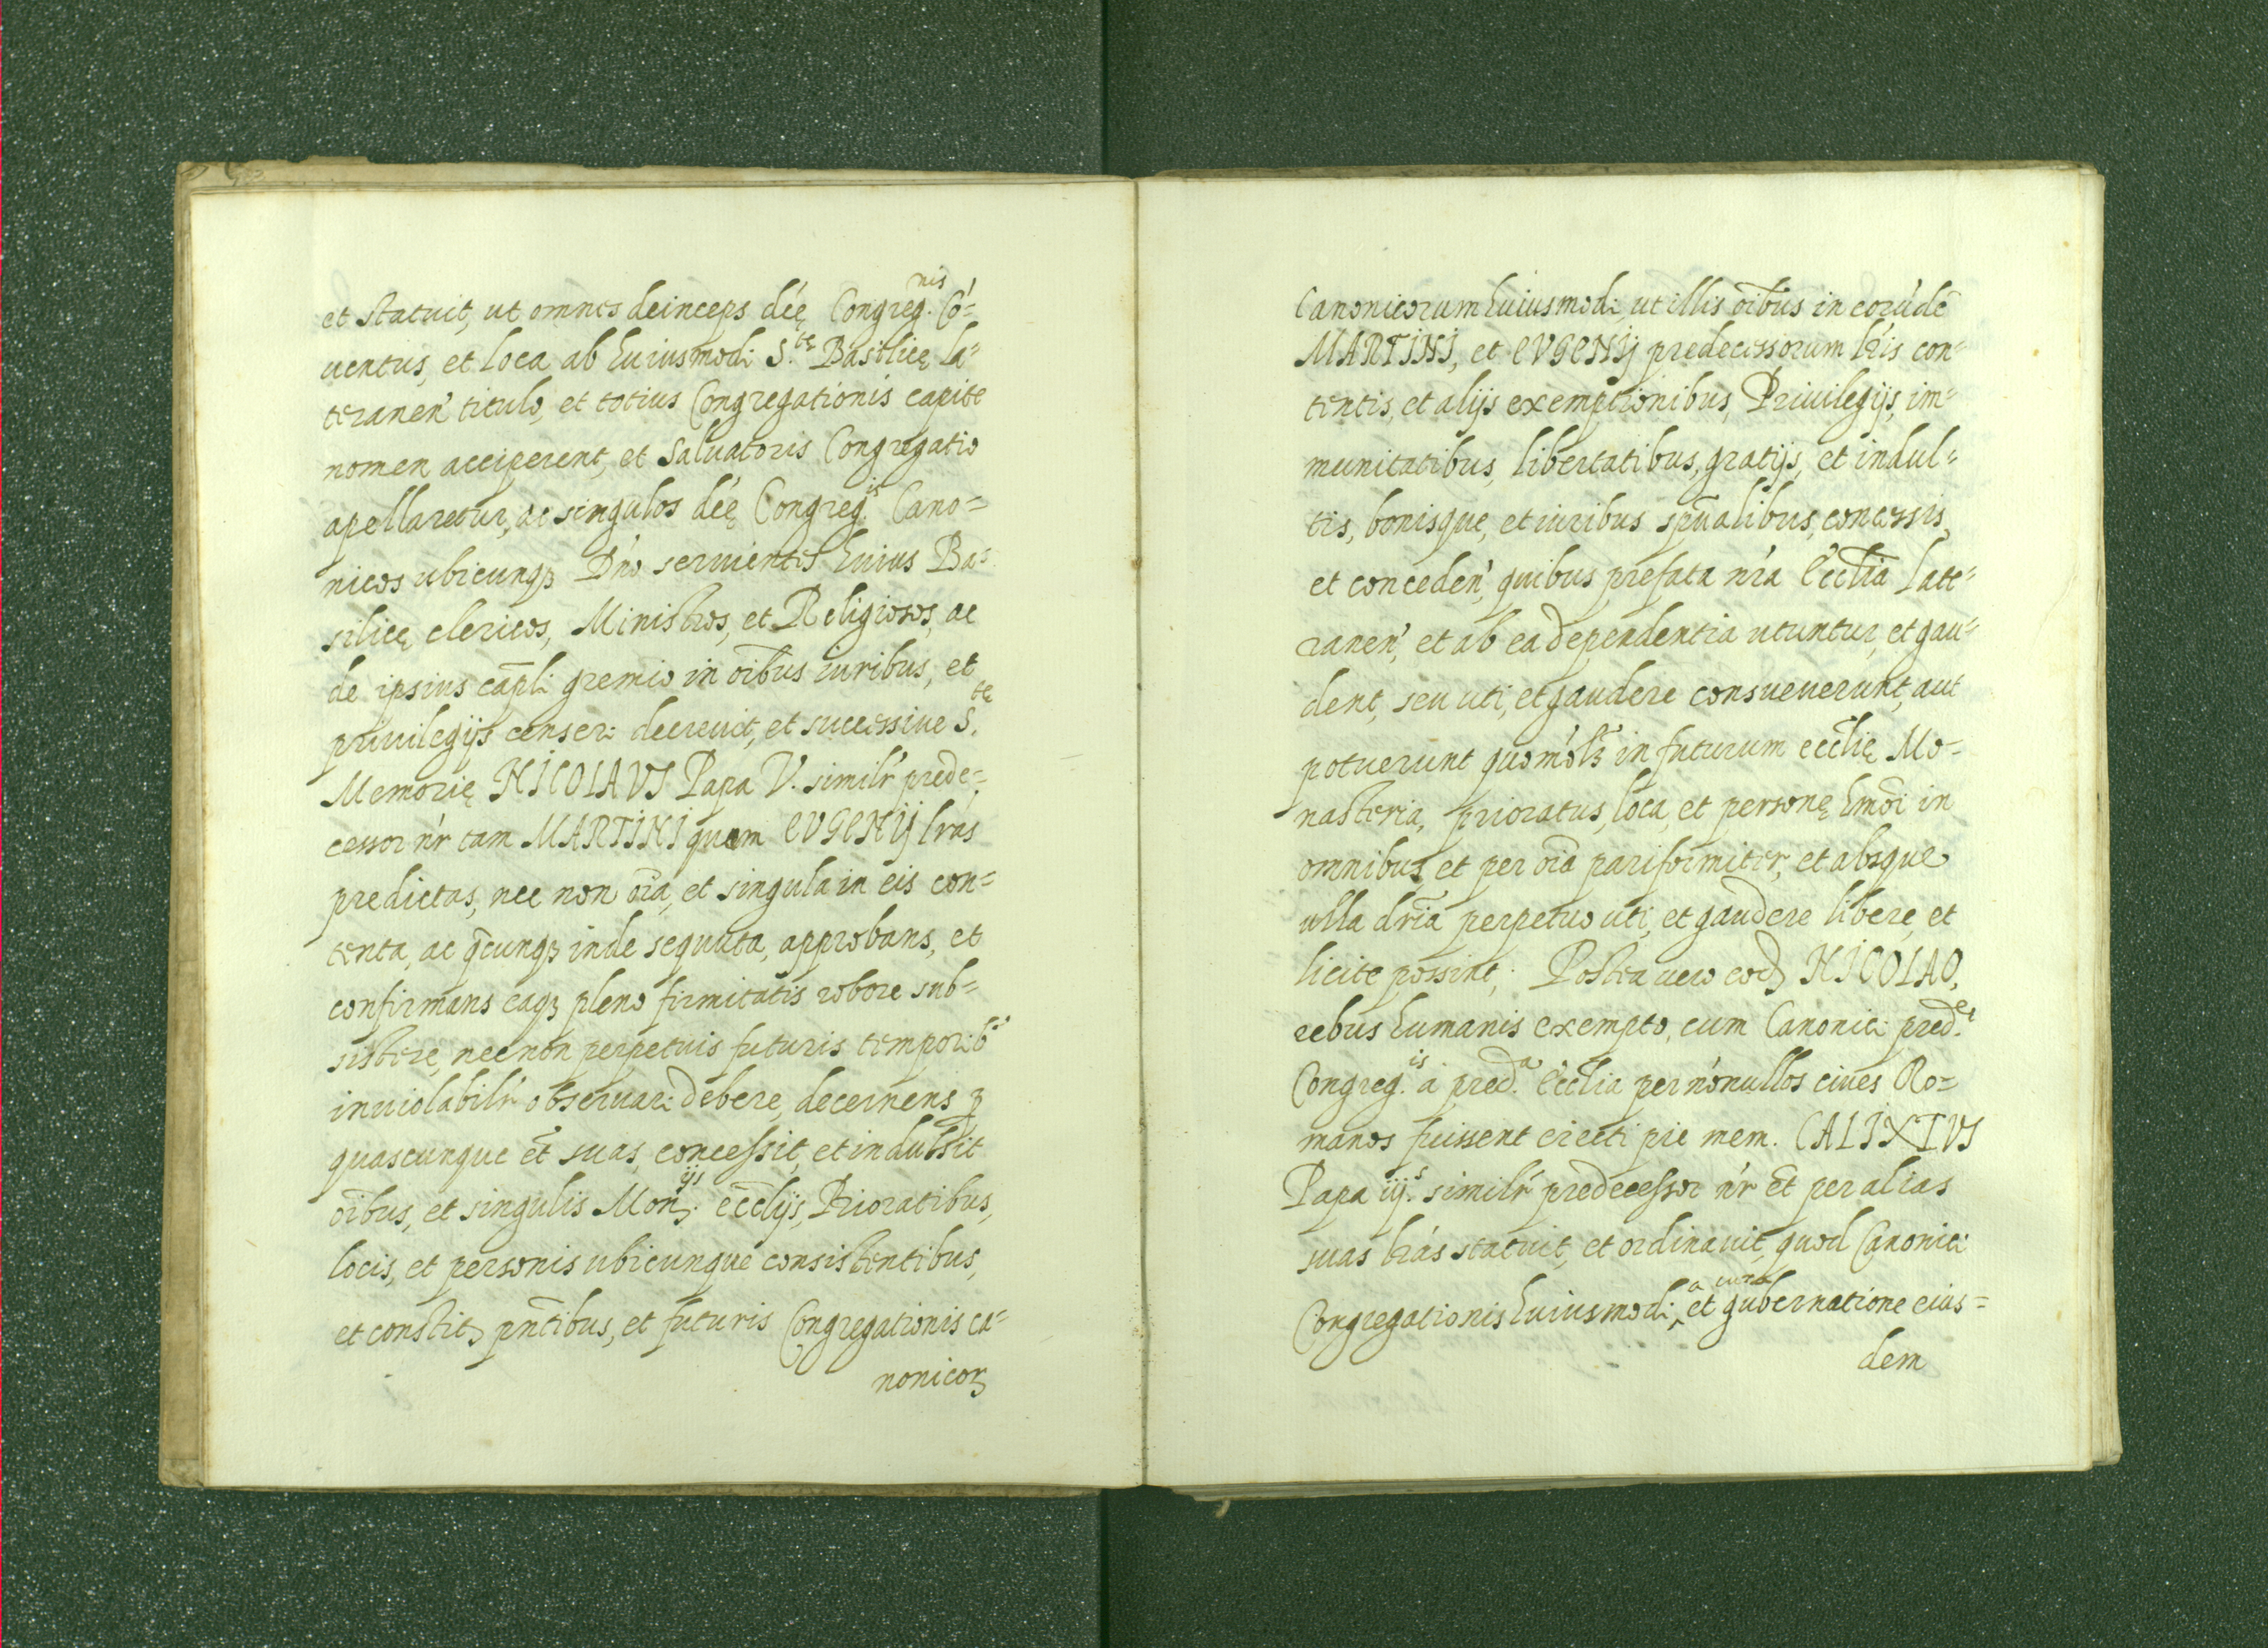 et statuit, ut omnes deinceps dćę Congreg.nis Có=
uentus, et loca ab huiusmodi S.tę Basilicę la=
teranen' titulo, et totius Congregationis capite
nomen acciperent, et Saluatoris Congregatio
apellaretur, ac singulos dćę Congreg.is Cano=
nicos ubicunqȝ Dńo seruientes huius Ba=
silicę clericos, Ministros, et Religiosos, ac
de ipsius cap̄li gremio in oībus iuribus, et
priuilegijs censeri decreuit, et successiue S.te
Memorię NICOLAVS Papa V. similr' prede=
cessor nr' tam MARTINI quam EVGENIJ lras
predictas, nec non oīa, et singula in eis con=
tenta, ac q̄cunqȝ inde sequuta, approbans, et
confirmans eaqȝ pleno firmitatis robore sub=
sistere, necnon perpetuis futuris temporib.'
inuiolabilr' obseruari debere, decernens ꝫ
quascunque et̄ suas, concessit, et indulsit
oībus, et singulis Mon.ijs eccl̄ijs, Prioratibus,
locis, et personis ubicunque consistentibus,
et constitꝫ pn̄tibus, et futuris Congregationis ca=
nonicorꝫ
Canonicorum huiusmodi, ut illis oībus in eorúdē
MARTINI, et EVGENIJ predecessorum lr̄is con=
tentis, et alijs exemptionibus, Priuilegijs, im=
munitatibus, libertatibus, gratijs, et indul=
tis, bonisque, et iuribus spūalibus, concessis
et conceden', quibus prefata nr̄a Ecclīa late=
ranen', et ab ea dependentia utuntur, et gau=
dent, seu uti, et gaudere consueuerunt, aut
potuerunt quomōlꝫ in futurum ecclīę Mo=
nasteria, prioratus, loca, et personę hmōi in
omnibus et per oīa pariformiter, et absque
ulla dr̄ia perpetuo uti, et gaudere libere, et
licite possint; Postea vero eodꝫ NICOLAO,
rebus humanis exempto, cum Canonici pred.ei
Congreg.is à pred.a Ecclīa per nónullos ciues Ro=
manos fuissent eiecti pie mem. CALIXTVS
Papa iij.s similr' predecessor nr' et̄ per alias
suas lrás statuit, et ordinauit, quod Canonici
Congregationis huiusmodi, a cura et gubernatione eius=
dem